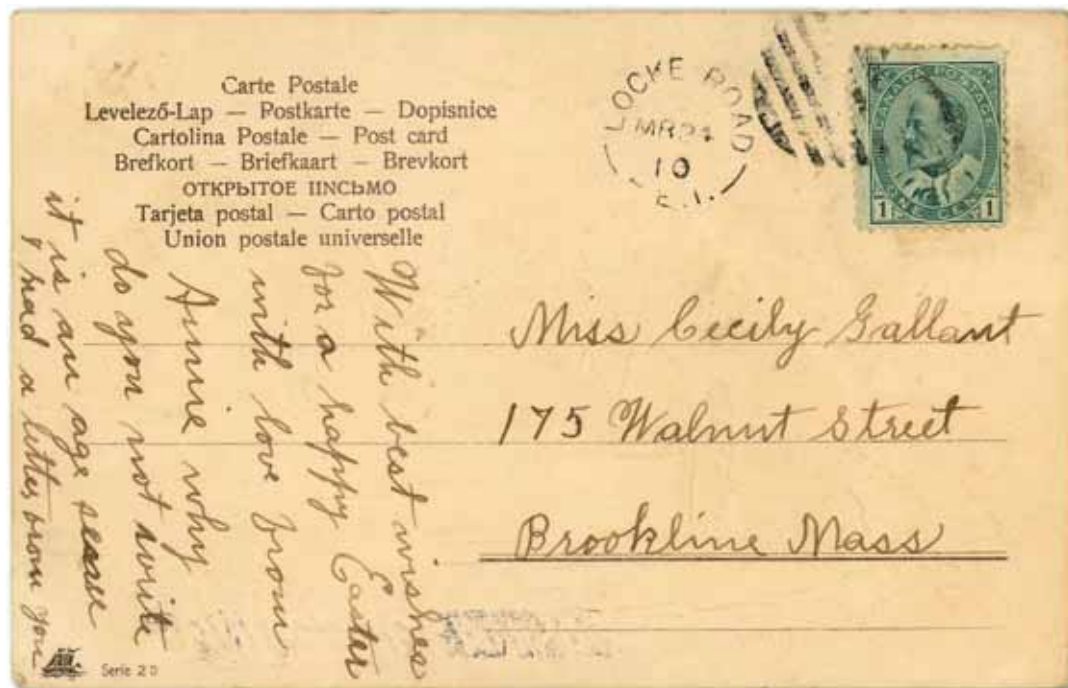 Carte Postale
Levelező-Lap — Postkarte — Dopisnice
Cartolina Postale — Post card
Brefkort — Briefkaart — Brevkort
ОТКРЫТОЕ ПИСЬМО
Tarjeta postal — Carto postal
Union postale universelle
LOCKE ROAD
MR 24
10
P.I.
CANADA POSTAGE
1 ONE CENT 1
Miss Cecily Gallant
175 Walnut Street
Brookline Mass
With best wishes
for a happy Easter
with love from
Annie why
do you not write
it is an age
I had a letter from you
Serie 20